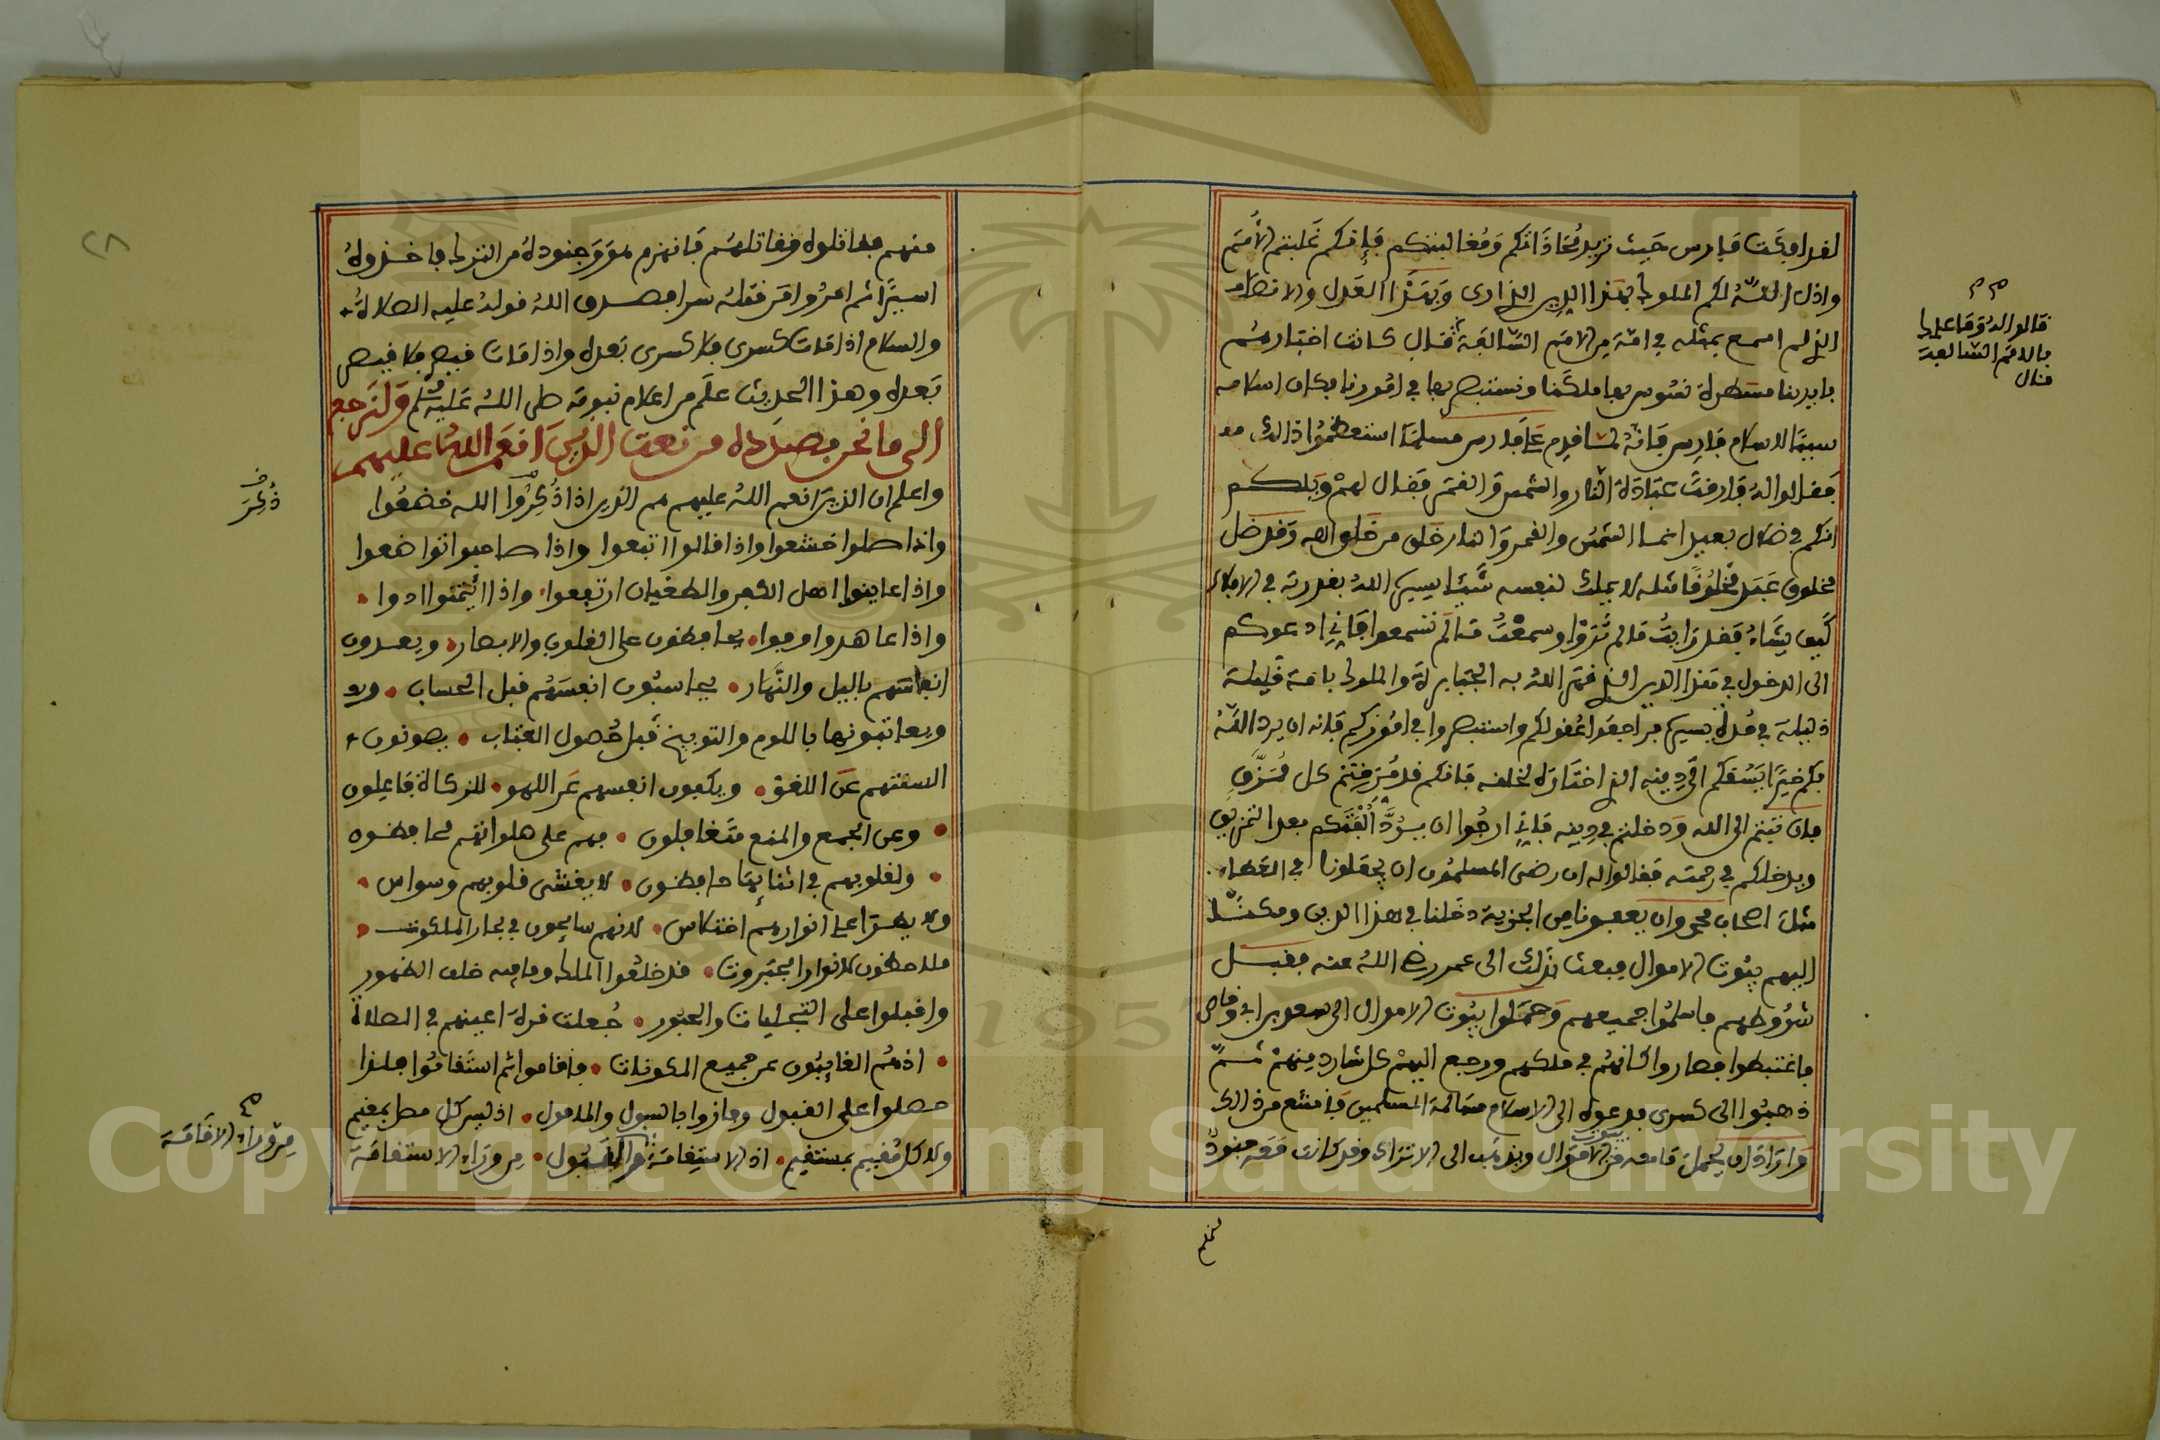 لقد افكت فارس حيث تريد محاذاتكم ومغالبتكم فإنكم غلبتم الأمم
واذل الله لكم الملوك بهذا الدين الذى وبهذا العدل والانصاف
الذى لم اسمع بمثله في امة من الامم السالفة فقال كانت اخبارهم
بايدينا مستطرة نسوس بها ملكنا ونستبصر بها في امورنا فكان اسلامه
سببا لاسلام فارس فانه لما قدم على فارس مسلما استعظموا ذالك منه
فقالوا له فارقت عبادة النار والشمس والقمر فقال لهم ويلكم
انكم في ضلال بعيد انما الشمس والقمر والنار خلق من خلق الله وقد ضل
مخلوق عبد مخلوقا مثله لا يملك لنفسه شيئا يسيره الله بقدرته في الافلاك
كيف يشاء فقد رايت ما لم تروا وسمعت ما لم تسمعوا فإني ادعوكم
الى الدخول في هذا الدين الذى قهر الله به الجبابرة والملوك بامة قليلة
ذليلة في مدة يسيرة فراجعوا عقولكم واستبصروا في اموركم فانه ان يرد الله
بكم خيرا يسقكم الى دينه الذى اختاره لخلقه فانكم قد مزقتم كل ممزق
فان تبتم الى الله ودخلتم في دينه فإني ارجوا ان يرد ألفتكم بعد التمزيق
ويدخلكم في رحمته فقالوا له ان رضى المسلمون ان يجعلونا في العطاء
مثل اصحاب محمد وان يعفونا من الجزية دخلنا في هذا الدين ومكنا
اليهم بيوت الاموال فبعث بذلك الى عمر رضي الله عنه فقبل
شروطهم فاسلموا جميعهم وحملوا بيوت الاموال الى سعد بن ابي وقاص
فاغتبطوا فصاروا كانهم في ملكهم ورجع اليهم كل شارد منهم ثم
ذهبوا الى كسرى فدعوه الى الاسلام مسالمة المسلمين فامتنع من ذالك
واراد ان يحمل ما معه من بيوت الاموال ويذهب الى الاتراك وقد كانت معه جنود
منهم
قالوا له وما علمك
بالامم السالفة
قال
منهم فقاتلوه فقاتلهم فانهزم هو وجنوده من الترك فاخذوه
اسيرا ثم امروا من قتله سرا فصدق الله قوله عليه الصلاة
والسلام اذا مات كسرى فلا كسرى بعده واذا مات قيصر فلا قيصر
بعده وهذا الحديث علم من اعلام نبوته صلى الله عليه وسلم ولنرجع
الى ما نحن بصدده من نعت الذين انعم الله عليهم
واعلم ان الذين انعم الله عليهم هم الذين اذا ذكروا الله خضعوا
واذا صلوا خشعوا واذا قالوا اتبعوا واذا صاحبوا تواضعوا
واذا عاينوا اهل الكفر والطغيان ارتفعوا واذا ائتمنوا ادوا
واذا عاهدوا وفوا يحافظون على القلوب والابصار ويعدون
انفاسهم بالليل والنهار يحاسبون انفسهم قبل الحساب
ويعاتبونها باللوم والتوبيخ قبل حصول العتاب يصونون
السنتهم عن اللغو ويكفون انفسهم عن اللهو للزكاة فاعلون
وعن الجمع والمنع متغافلون فهم على صلواتهم محافظون
ولقلوبهم في اثنائها حافظون لا يغشى قلوبهم وسواس
ولا يطرا على انوارهم اختلاس لانهم سابحون في بحار الملكوت
ملاحظون لانوار الجبروت قد خلفوا الملك وما فيه خلف الظهور
واقبلوا على التجليات والحبور جعلت قرة اعينهم في الصلاة
اذ هم الغائبون عن جميع المكونات فاقاموا ثم استقاموا فلذا
حصلوا على القبول وفازوا بالسول والمامول اذ ليس كل مصل بمقيم
ولا كل مقيم بمستقيم اذ الاستقامة من وراء الاستقامة
ذكر
من وراء الاقامة
٢٨
1957
Copyright © King Saud University